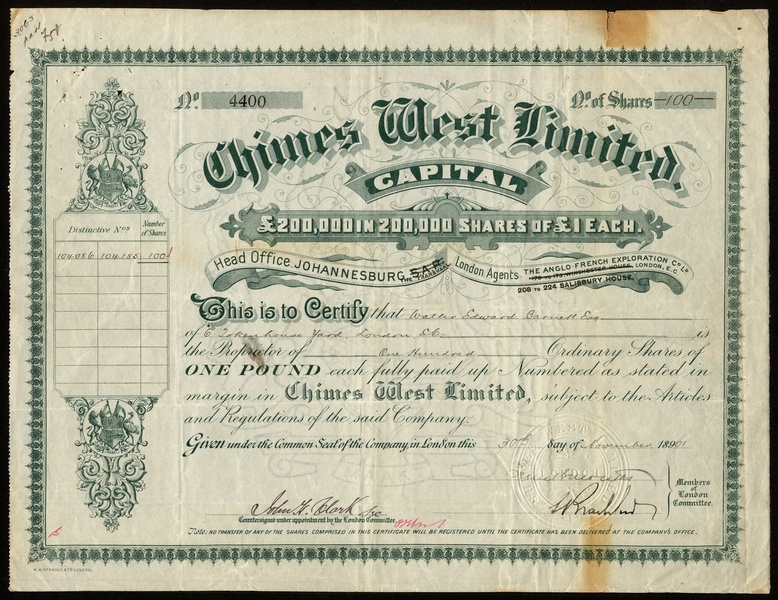 Nº 4400
Nº of Shares 100
Chimes West Limited.
CAPITAL
£200,000 IN 200,000 SHARES OF £1 EACH.
Head Office, JOHANNESBURG, S.A.R. THE TRANSVAAL London Agents THE ANGLO-FRENCH EXPLORATION Co Ld
175 TO 179, WINCHESTER HOUSE, LONDON, E.C.
208 TO 224 SALISBURY HOUSE,
Distinctive Nos Number of Shares
104,086 104,185 100
This is to Certify that Walter Edward Barnett Esq
of 6 Tokenhouse Yard, London E.C. is
the Proprietor of One Hundred Ordinary Shares of
ONE POUND each fully paid up Numbered as stated in
margin in Chimes West Limited, subject to the Articles
and Regulations of the said Company.
Given under the Common Seal of the Company, in London this 30th day of November 1901
Members of London Committee.
John H. Clark
Countersigned under appointment by the London Committee
Note: NO TRANSFER OF ANY OF THE SHARES COMPRISED IN THIS CERTIFICATE WILL BE REGISTERED UNTIL THE CERTIFICATE HAS BEEN DELIVERED AT THE COMPANY'S OFFICE.